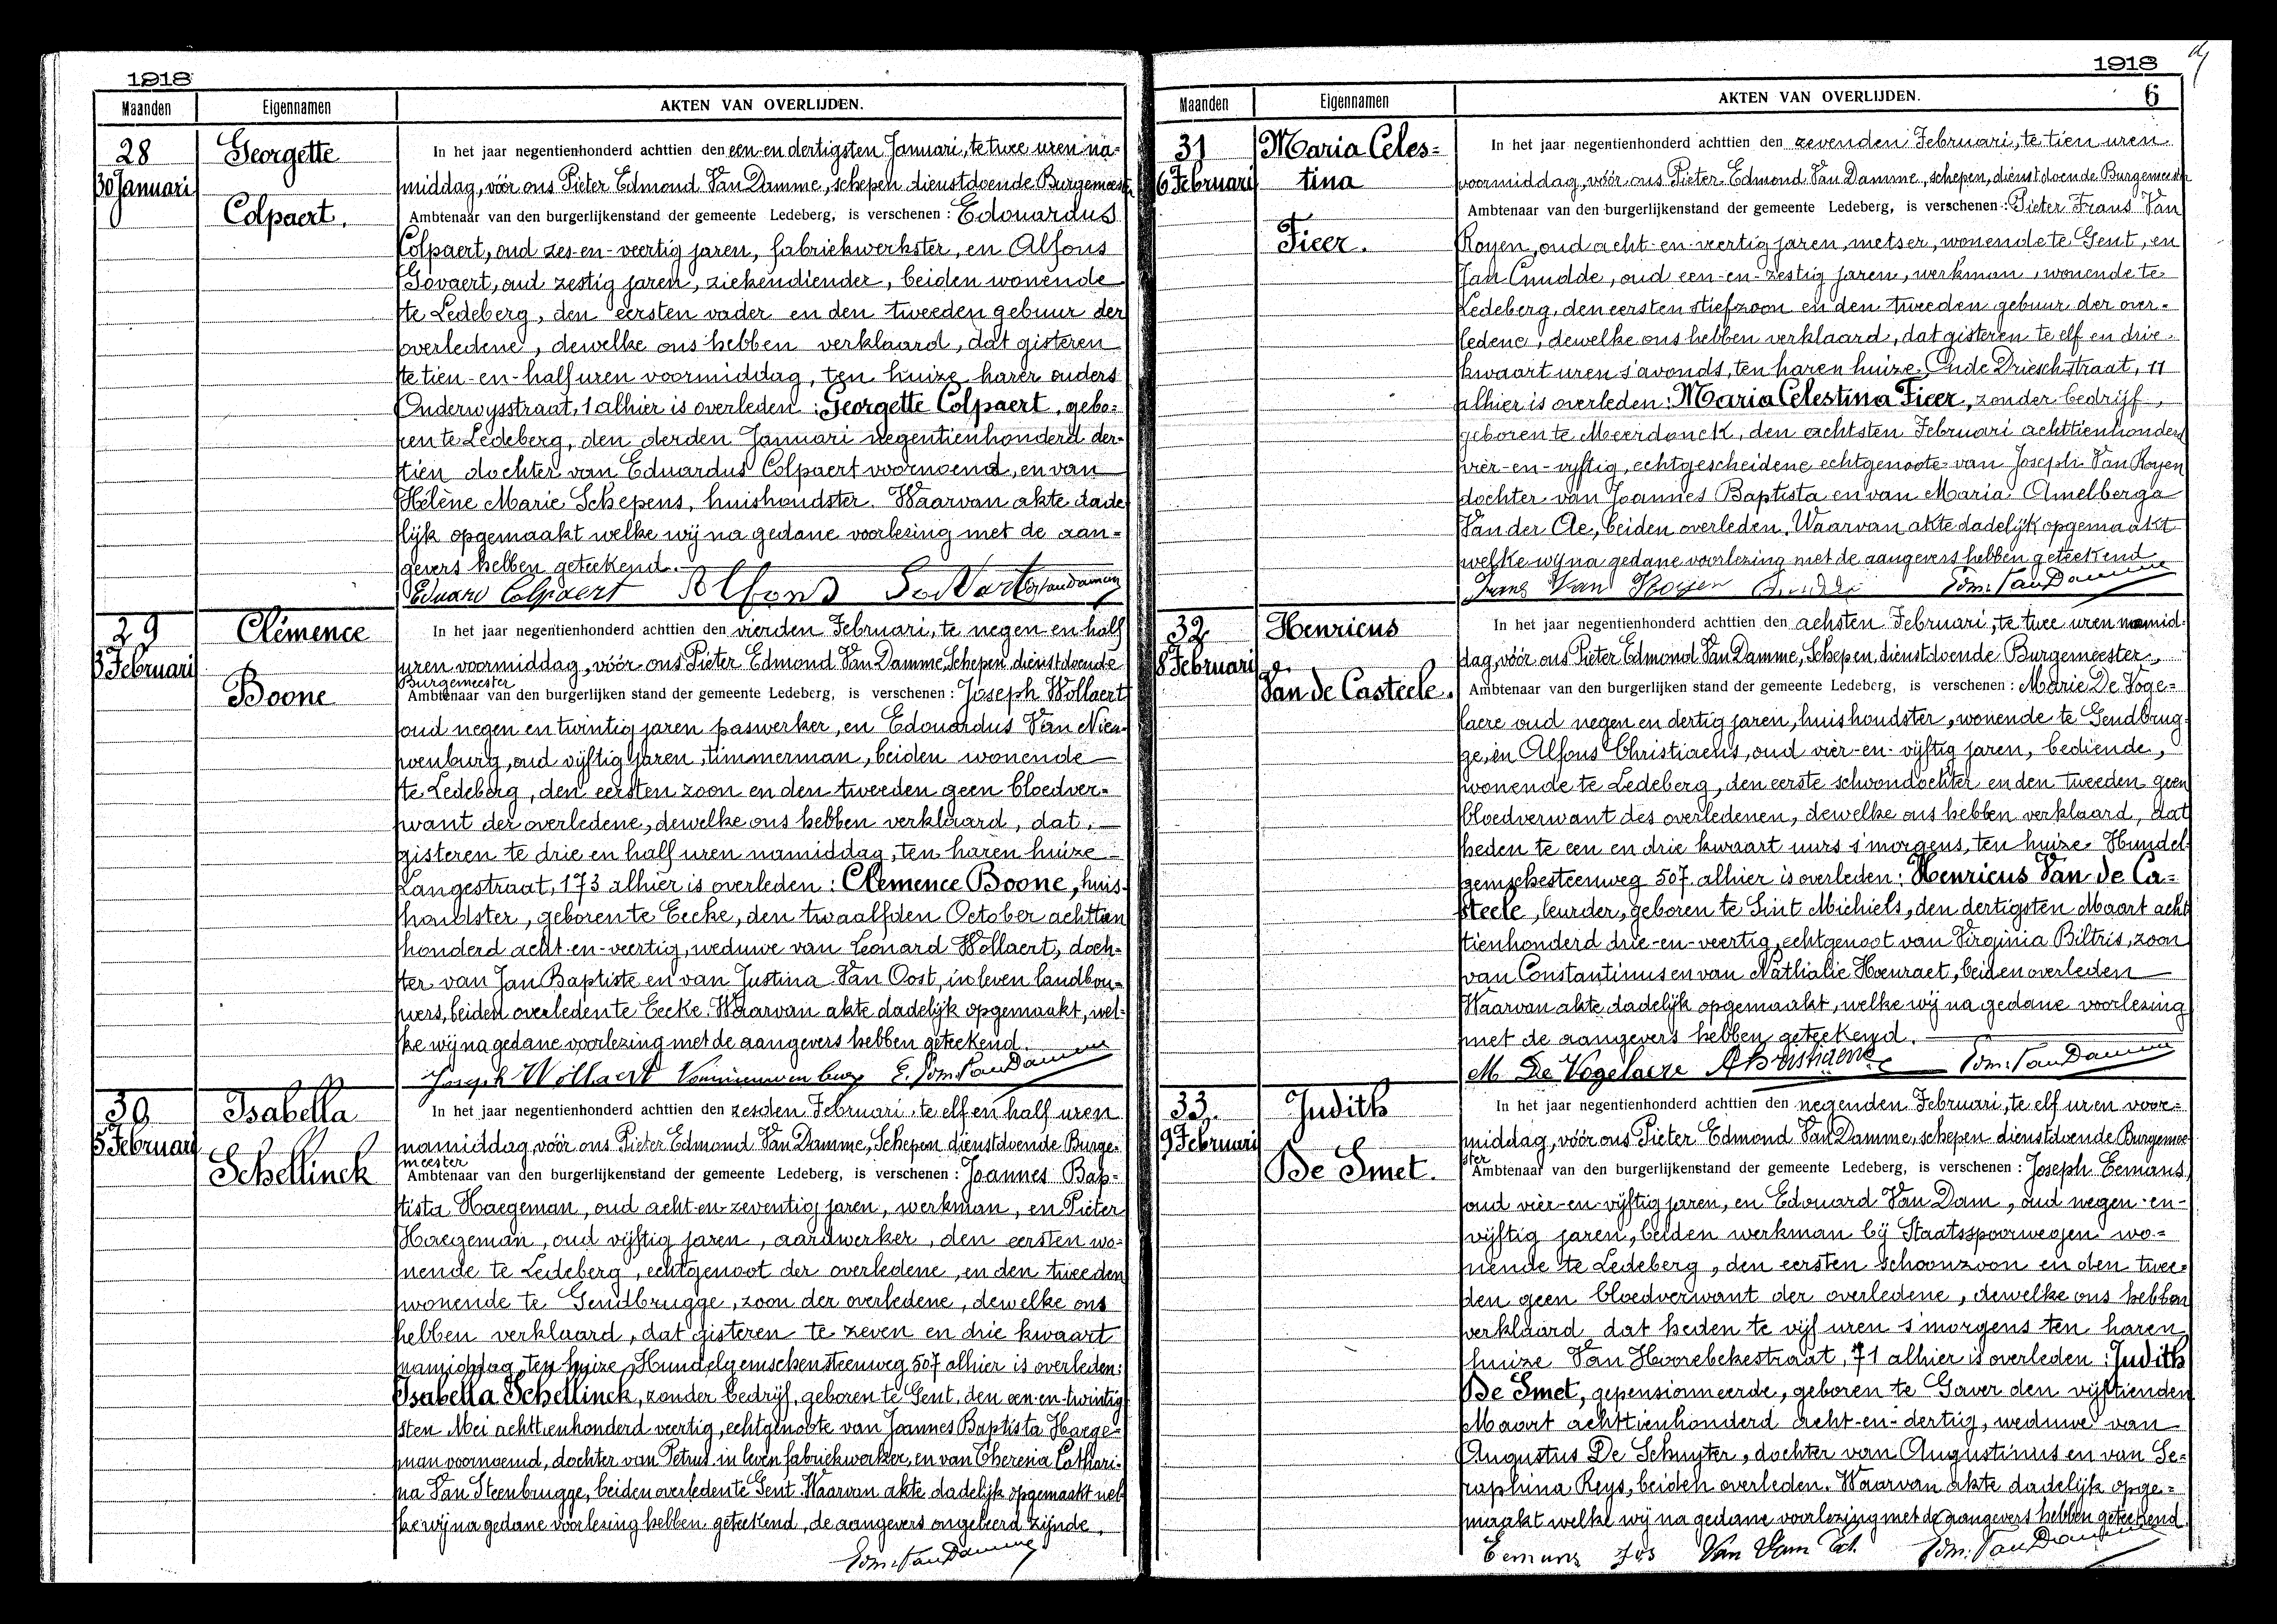 1918
Maanden Eigennamen AKTEN VAN OVERLIJDEN.
28
30 Januari
Georgette
Colpaert.
In het jaar negentienhonderd achttien den een en dertigsten Januari, te twee uren na=
middag, vóór ons Pieter Edmond Van Damme, schepen dienstdoende Burgemeester,
Ambtenaar van den burgerlijkenstand der gemeente Ledeberg, is verschenen: Edouardus
Colpaert, oud zes-en-veertig jaren, fabriekwerkster, en Alfons
Govaert, oud zestig jaren, ziekendiender, beiden wonende
te Ledeberg, den eersten vader en den tweeden gebuur der
overledene, dewelke ons hebben verklaard, dat gisteren
te tien-en-half uren voormiddag, ten huize harer ouders
Onderwysstraat, 1 alhier is overleden: Georgette Colpaert, gebo=
ren te Ledeberg, den derden Januari negentienhonderd der-
tien dochter van Eduardus Colpaert voornoemd, en van
Hélène Marie Schepens, huishoudster. Waarvan akte dade
lijk opgemaakt welke wij na gedane voorlezing met de aan=
gevers hebben geteekend.
Eduard Colpaert Alfons Govaert
29
3 Februari
Clémence
Boone
In het jaar negentienhonderd achttien den vierden Februari, te negen en half
uren voormiddag, vóór ons Pieter Edmond Van Damme, Schepen dienstdoende
Burgemeester
Ambtenaar van den burgerlijken stand der gemeente Ledeberg, is verschenen: Joseph Wollaert
oud negen en twintig jaren paswerker, en Edouardus Van Nieu-
wenburg, oud vijftig jaren, timmerman, beiden wonende
te Ledeberg, den eersten zoon en den tweeden geen bloedver=
want der overledene, dewelke ons hebben verklaard, dat
gisteren te drie en half uren namiddag, ten haren huize
Langestraat, 173 alhier is overleden: Clemence Boone, huis-
houdster, geboren te Eecke, den twaalfden October achttien
honderd acht-en-veertig, weduwe van Leonard Wollaert, doch=
ter van Jan Baptiste en van Justina Van Oost, in leven landbou=
wers, beiden overleden te Eecke. Waarvan akte dadelijk opgemaakt, wel=
ke wij na gedane voorlezing met de aangevers hebben geteekend.
Joseph Wollaert Vannieuwenburg E. Edm. Van Damme
30
5 Februari
Isabella
Schellinck
In het jaar negentienhonderd achttien den zesden Februari te elf en half uren
namiddag, vóór ons Pieter Edmond Van Damme, Schepen dienstdoende Burge-
meester
Ambtenaar van den burgerlijkenstand der gemeente Ledeberg, is verschenen: Joannes Bap=
tista Haegeman, oud acht-en-zeventig jaren, werkman, en Pieter
Haegeman, oud vijftig jaren, aardwerker, den eersten wo-
nende te Ledeberg, echtgenoot der overledene, en den tweeden
wonende te Gendbrugge, zoon der overledene, dewelke ons
hebben verklaard, dat gisteren te zeven en drie kwaart
namiddag, ten huize Hundelgemschensteenweg 507 alhier is overleden:
Isabella Schellinck, zonder bedrijf, geboren te Gent, den een-en-twintig
sten Mei achttienhonderd veertig, echtgenoote van Joannes Baptista Haege=
man voornoemd, dochter van Petrus in leven fabriekwerker, en van Theresia Cathari-
na Van Steenbrugge, beiden overleden te Gent. Waarvan akte dadelijk opgemaakt wel
ke wij na gedane voorlezing hebben geteekend, de aangevers ongeleerd zijnde.
Edm. Van Damme
1918
6
Maanden Eigennamen AKTEN VAN OVERLIJDEN.
31
6 Februari
Maria Celes=
tina
Ficer.
In het jaar negentienhonderd achttien den zevenden Februari, te tien uren
voormiddag, vóór ons Pieter Edmond Van Damme, schepen, dienstdoende Burgemeester
Ambtenaar van den burgerlijkenstand der gemeente Ledeberg, is verschenen: Pieter Frans Van
Royen, oud acht-en-veertig jaren, metser, wonende te Gent, en
Jan Cnudde, oud een-en-zestig jaren, werkman, wonende te
Ledeberg, den eersten stiefzoon en den tweeden gebuur der over-
ledene, dewelke ons hebben verklaard, dat gisteren te elf en drie
kwaart uren s'avonds, ten haren huize, Oude Drieschstraat, 11
alhier is overleden: Maria Celestina Ficer, zonder bedrijf,
geboren te Meerdonck, den achtsten Februari achttienhonderd
vier-en-vyftig, echtgescheidene echtgenoote van Joseph Van Royen
dochter van Joannes Baptista en van Maria Amelberga
Van der Ae, beiden overleden. Waarvan akte dadelijk opgemaakt
welke wij na gedane voorlezing met de aangevers hebben geteekend
Frans Van Royen Cnudde Edm. Van Damme
32
8 Februari
Henricus
Van de Casteele.
In het jaar negentienhonderd achttien den achsten Februari, te twee uren namid-
dag, vóór ons Pieter Edmond Van Damme, Schepen, dienstdoende Burgemeester,
Ambtenaar van den burgerlijken stand der gemeente Ledeberg, is verschenen: Marie De Voge=
laere oud negen en dertig jaren, huishoudster, wonende te Gendbrug-
ge, en Alfons Christiaens, oud vier-en-vijftig jaren, bediende,
wonende te Ledeberg, den eerste schoondochter en den tweeden geen
bloedverwant des overledenen, dewelke ons hebben verklaard, dat
heden te een en drie kwaart uurs s'morgens, ten huize Hundel-
gemschesteenweg 507 alhier is overleden: Henricus Van de Ca=
steele, leurder, geboren te Sint Michiels, den dertigsten Maart acht
tienhonderd drie-en-veertig, echtgenoot van Virginia Biltris, zoon
van Constantinus en van Nathalie Hoenraet, beiden overleden
Waarvan akte dadelijk opgemaakt, welke wij na gedane voorlezing
met de aangevers hebben geteekend.
M De Vogelaere A Christiaens Edm. Van Damme
33.
9 Februari
Judith
De Smet.
In het jaar negentienhonderd achttien den negenden Februari, te elf uren voor=
middag, vóór ons Pieter Edmond Van Damme, schepen dienstdoende Burgemee
ster
Ambtenaar van den burgerlijkenstand der gemeente Ledeberg, is verschenen: Joseph Eemans,
oud vier-en-vijftig jaren, en Edouard Van Dam, oud negen-en-
vijftig jaren, beiden werkman bij Staatsspoorwegen wo=
nende te Ledeberg, den eersten schoonzoon en den twee=
den geen bloedverwant der overledene, dewelke ons hebben
verklaard dat heden te vijf uren s'morgens ten haren
huize Van Hoorebekestraat, 71 alhier is overleden: Judith
De Smet, gepensionneerde, geboren te Gaver den vijftienden
Maart achttienhonderd acht-en-dertig, weduwe van
Augustus De Schuyter, dochter van Augustinus en van Se=
raphina Reys, beiden overleden. Waarvan akte dadelijk opge=
maakt welke wij na gedane voorlezing met de aangevers hebben geteekend.
Eemans Jos Van Dam Ed. Edm. Van Damme